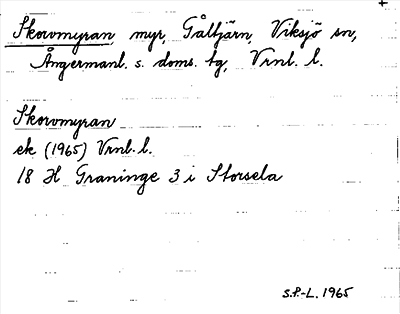 Skorvmyran myr, Gåltjärn, Viksjö sn,
Ångermanl. s. doms. tg, Vrnl. l.
Skorvmyran
ek (1965) Vrnl. l.
18 H Graninge 3 i Storsela
S.P.-L. 1965